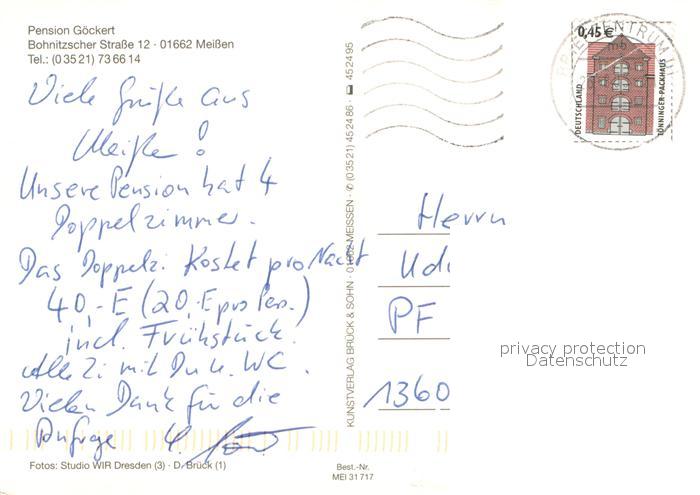 Pension Göckert
Bohnitzscher Straße 12 · 01662 Meißen
Tel.: (0 35 21) 73 66 14
Viele Grüße aus
Meißen!
Unsere Pension hat 4
Doppelzimmer.
Das Doppelzi. kostet pro Nacht
40,-E (20,-E pro Pers.)
incl. Frühstück.
Alle Zi mit Du u. WC.
Vielen Dank für die
Anfrage
Fotos: Studio WIR Dresden (3) · D. Brück (1)
KUNSTVERLAG BRÜCK & SOHN · 01662 MEISSEN · ✆ (0 35 21) 45 24 86 · 45 24 95
Best.-Nr.
MEI 31 717
0,45 €
DEUTSCHLAND
TÖNNINGER PACKHAUS
BRIEFZENTRUM
mb
Herrn
Udi
PF
1360
privacy protection
Datenschutz